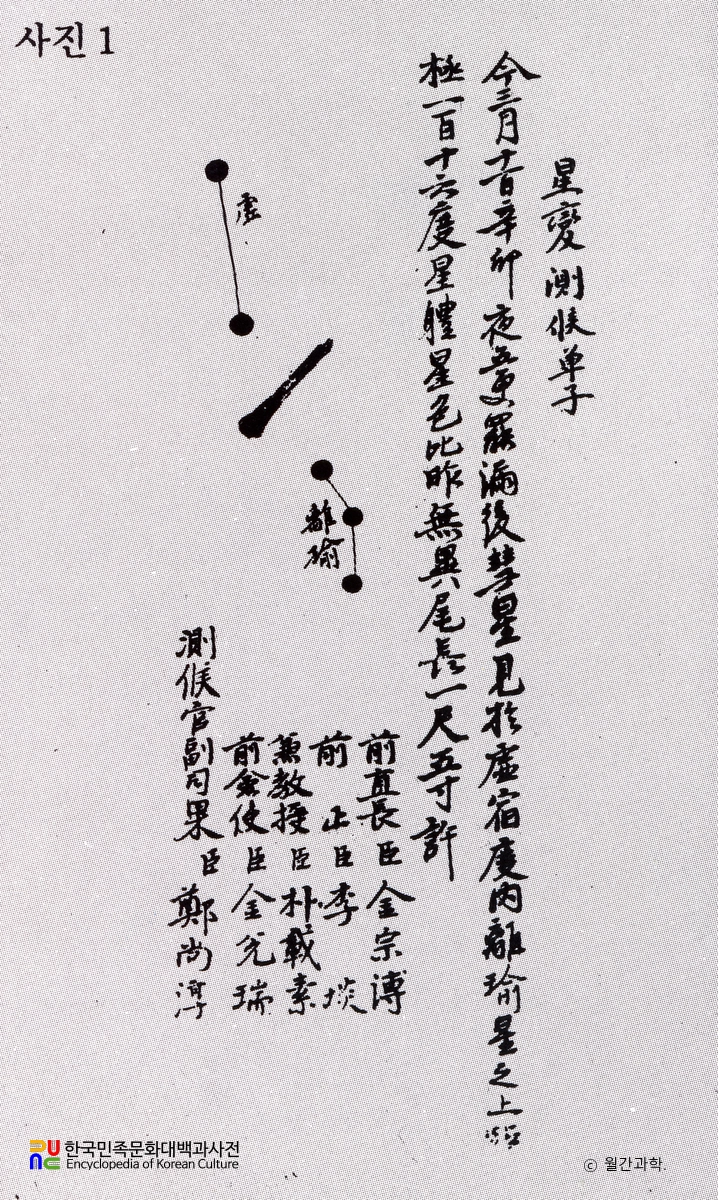 사진 1
星變測候单子
今三月十一日辛卯夜五更罷漏後彗星見於虛宿度內離瑜星之上
極一百十六度星體星色比昨無異尾長一尺五寸許
虛
離瑜
前直長臣金宗溥
前正臣李埮
兼教授臣朴載素
前僉使臣金兌瑞
測候官副司果臣鄭尚淳
한국민족문화대백과사전
Encyclopedia of Korean Culture
ⓒ 월간과학.